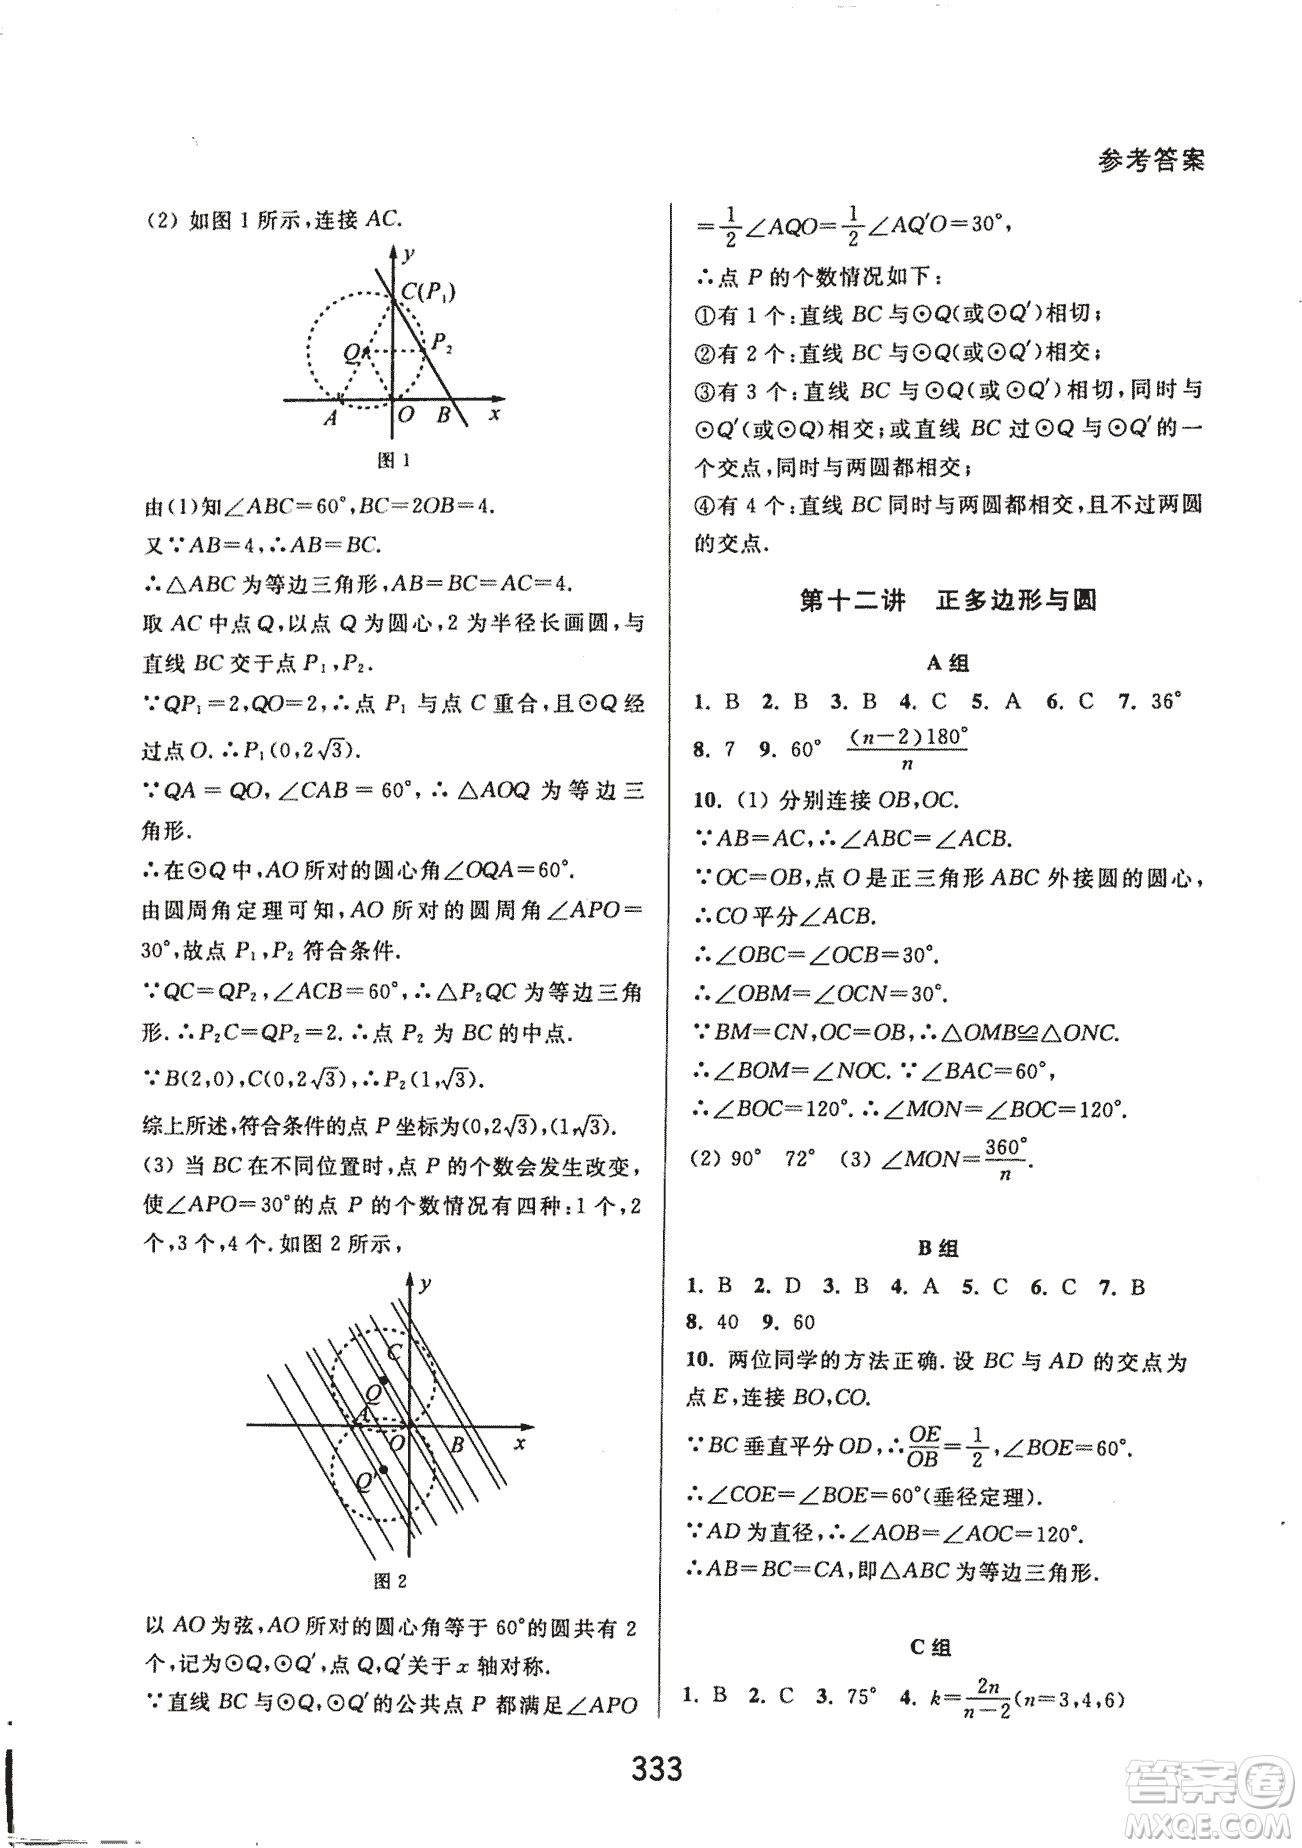 参考答案
(2) 如图 1 所示,连接 AC.
y
C(P₁)
Q
P₂
A
O
B
x
图 1
由(1)知∠ABC=60°,BC=2OB=4.
又∵AB=4,∴AB=BC.
∴△ABC 为等边三角形,AB=BC=AC=4.
取 AC 中点 Q,以点 Q 为圆心,2 为半径长画圆,与
直线 BC 交于点 P₁,P₂.
∵QP₁=2,QO=2,∴点 P₁ 与点 C 重合,且⊙Q 经
过点 O.∴P₁(0,2√3).
∵QA=QO,∠CAB=60°,∴△AOQ 为等边三
角形.
∴在⊙Q 中,AO 所对的圆心角∠OQA=60°.
由圆周角定理可知,AO 所对的圆周角∠APO=
30°,故点 P₁,P₂ 符合条件.
∵QC=QP₂,∠ACB=60°,∴△P₂QC 为等边三角
形.∴P₂C=QP₂=2.∴点 P₂ 为 BC 的中点.
∵B(2,0),C(0,2√3),∴P₂(1,√3).
综上所述,符合条件的点 P 坐标为(0,2√3),(1,√3).
(3) 当 BC 在不同位置时,点 P 的个数会发生改变,
使∠APO=30°的点 P 的个数情况有四种:1 个,2
个,3 个,4 个.如图 2 所示,
y
C
Q
A
O
B
x
Q′
图 2
以 AO 为弦,AO 所对的圆心角等于 60°的圆共有 2
个,记为⊙Q,⊙Q′,点 Q,Q′关于 x 轴对称.
∵直线 BC 与⊙Q,⊙Q′的公共点 P 都满足∠APO
=1/2∠AQO=1/2∠AQ′O=30°,
∴点 P 的个数情况如下:
①有 1 个:直线 BC 与⊙Q(或⊙Q′)相切;
②有 2 个:直线 BC 与⊙Q(或⊙Q′)相交;
③有 3 个:直线 BC 与⊙Q(或⊙Q′)相切,同时与
⊙Q′(或⊙Q)相交;或直线 BC 过⊙Q 与⊙Q′的一
个交点,同时与两圆都相交;
④有 4 个:直线 BC 同时与两圆都相交,且不过两圆
的交点.
第十二讲 正多边形与圆
A 组
1. B 2. B 3. B 4. C 5. A 6. C 7. 36°
8. 7 9. 60° (n-2)180°/n
10. (1) 分别连接 OB,OC.
∵AB=AC,∴∠ABC=∠ACB.
∵OC=OB,点 O 是正三角形 ABC 外接圆的圆心,
∴CO 平分∠ACB.
∴∠OBC=∠OCB=30°.
∴∠OBM=∠OCN=30°.
∵BM=CN,OC=OB,∴△OMB≌△ONC.
∴∠BOM=∠NOC.∵∠BAC=60°,
∴∠BOC=120°.∴∠MON=∠BOC=120°.
(2) 90° 72° (3) ∠MON=360°/n.
B 组
1. B 2. D 3. B 4. A 5. C 6. C 7. B
8. 40 9. 60
10. 两位同学的方法正确.设 BC 与 AD 的交点为
点 E,连接 BO,CO.
∵BC 垂直平分 OD,∴OE/OB=1/2,∠BOE=60°.
∴∠COE=∠BOE=60°(垂径定理).
∵AD 为直径,∴∠AOB=∠AOC=120°.
∴AB=BC=CA,即△ABC 为等边三角形.
C 组
1. B 2. C 3. 75° 4. k=2n/(n-2)(n=3,4,6)
333
答案圈
MXQE.COM